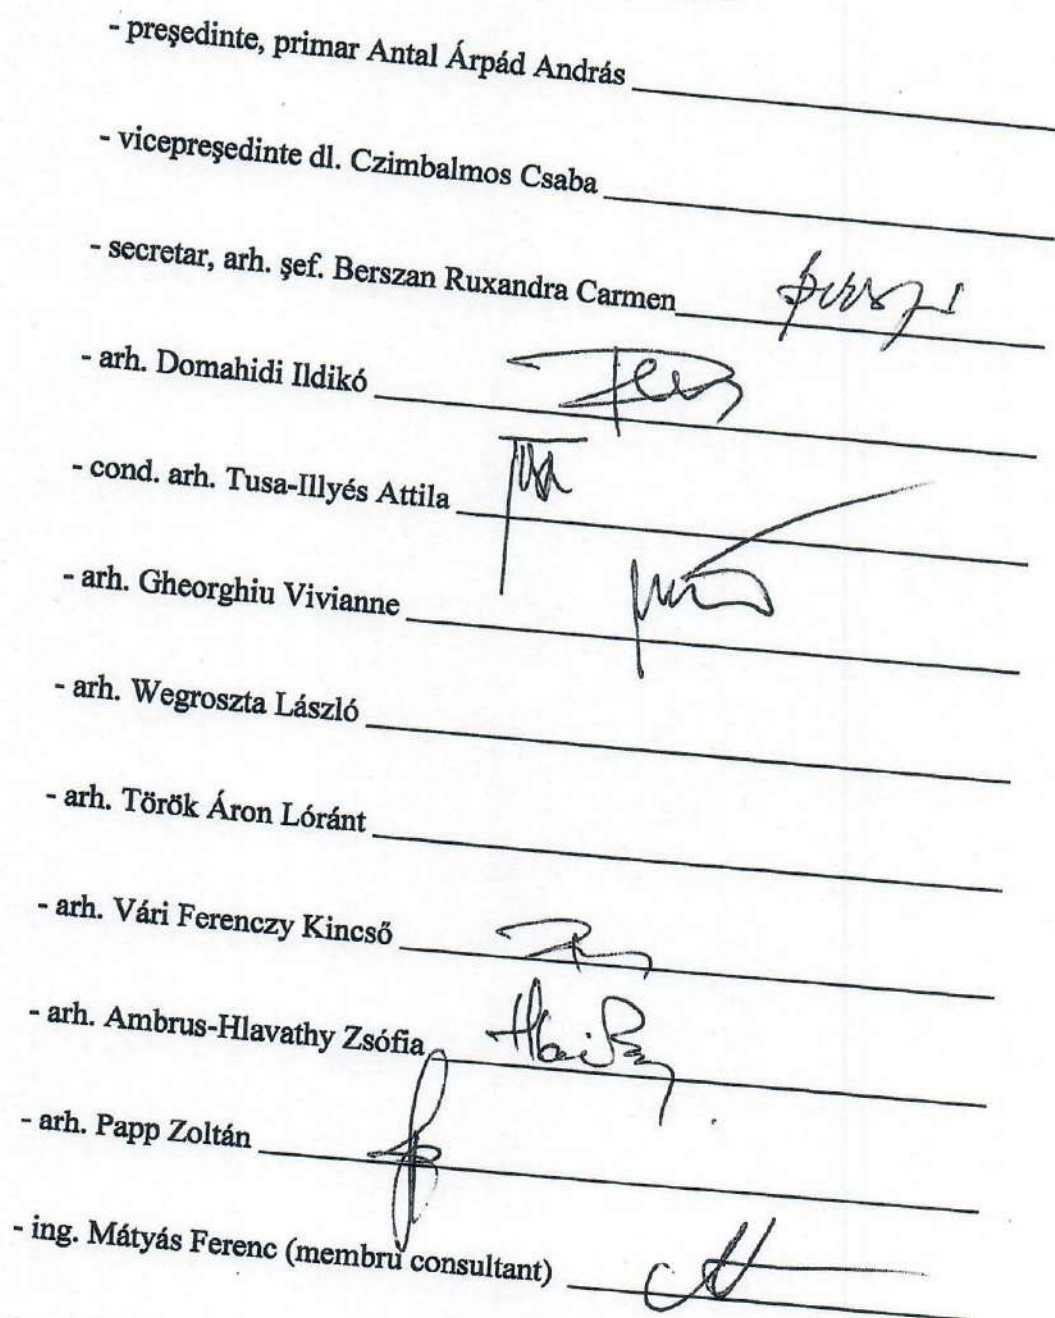 - preşedinte, primar Antal Árpád András
- vicepreşedinte dl. Czimbalmos Csaba
- secretar, arh. şef. Berszan Ruxandra Carmen
- arh. Domahidi Ildikó
- cond. arh. Tusa-Illyés Attila
- arh. Gheorghiu Vivianne
- arh. Wegroszta László
- arh. Török Áron Lóránt
- arh. Vári Ferenczy Kincső
- arh. Ambrus-Hlavathy Zsófia
- arh. Papp Zoltán
- ing. Mátyás Ferenc (membru consultant)